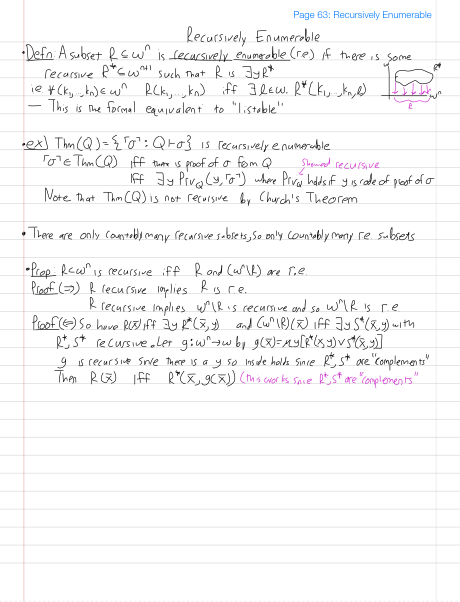 Page 63: Recursively Enumerable
Recursively Enumerable
• Defn: A subset R ⊆ ωⁿ is recursively enumerable (re) if there is some
recursive R* ⊆ ωⁿ⁺¹ such that R is ∃yR*
ie ∀(k₁,...,kₙ)∈ωⁿ R(k₁,...,kₙ) iff ∃ℓ∈ω. R*(k₁,...,kₙ,ℓ)
— This is the formal equivalent to "listable"
y R* ωⁿ R
• ex) Thm(Q) = {⌜σ⌝ : Q⊢σ} is recursively enumerable
⌜σ⌝ ∈ Thm(Q) iff there is proof of σ from Q
Showed recursive
iff ∃y Prv_Q(y,⌜σ⌝) where Prv_Q holds if y is code of proof of σ
Note that Thm(Q) is not recursive by Church's Theorem
• There are only countably many recursive subsets, so only countably many r.e. subsets
• Prop: R⊂ωⁿ is recursive iff R and (ωⁿ\R) are r.e.
Proof (⇒) R recursive implies R is r.e.
R recursive implies ωⁿ\R is recursive and so ωⁿ\R is r.e
Proof (⇐) So have R(x̄) iff ∃y R*(x̄,y) and (ωⁿ\R)(x̄) iff ∃y S*(x̄,y) with
R*, S* recursive. Let g: ωⁿ→ω by g(x̄)=μy[R*(x̄,y)∨S*(x̄,y)]
g is recursive since there is a y so inside holds since R*, S* are "complements"
Then R(x̄) iff R*(x̄,g(x̄)) (this works since R*, S* are "complements"